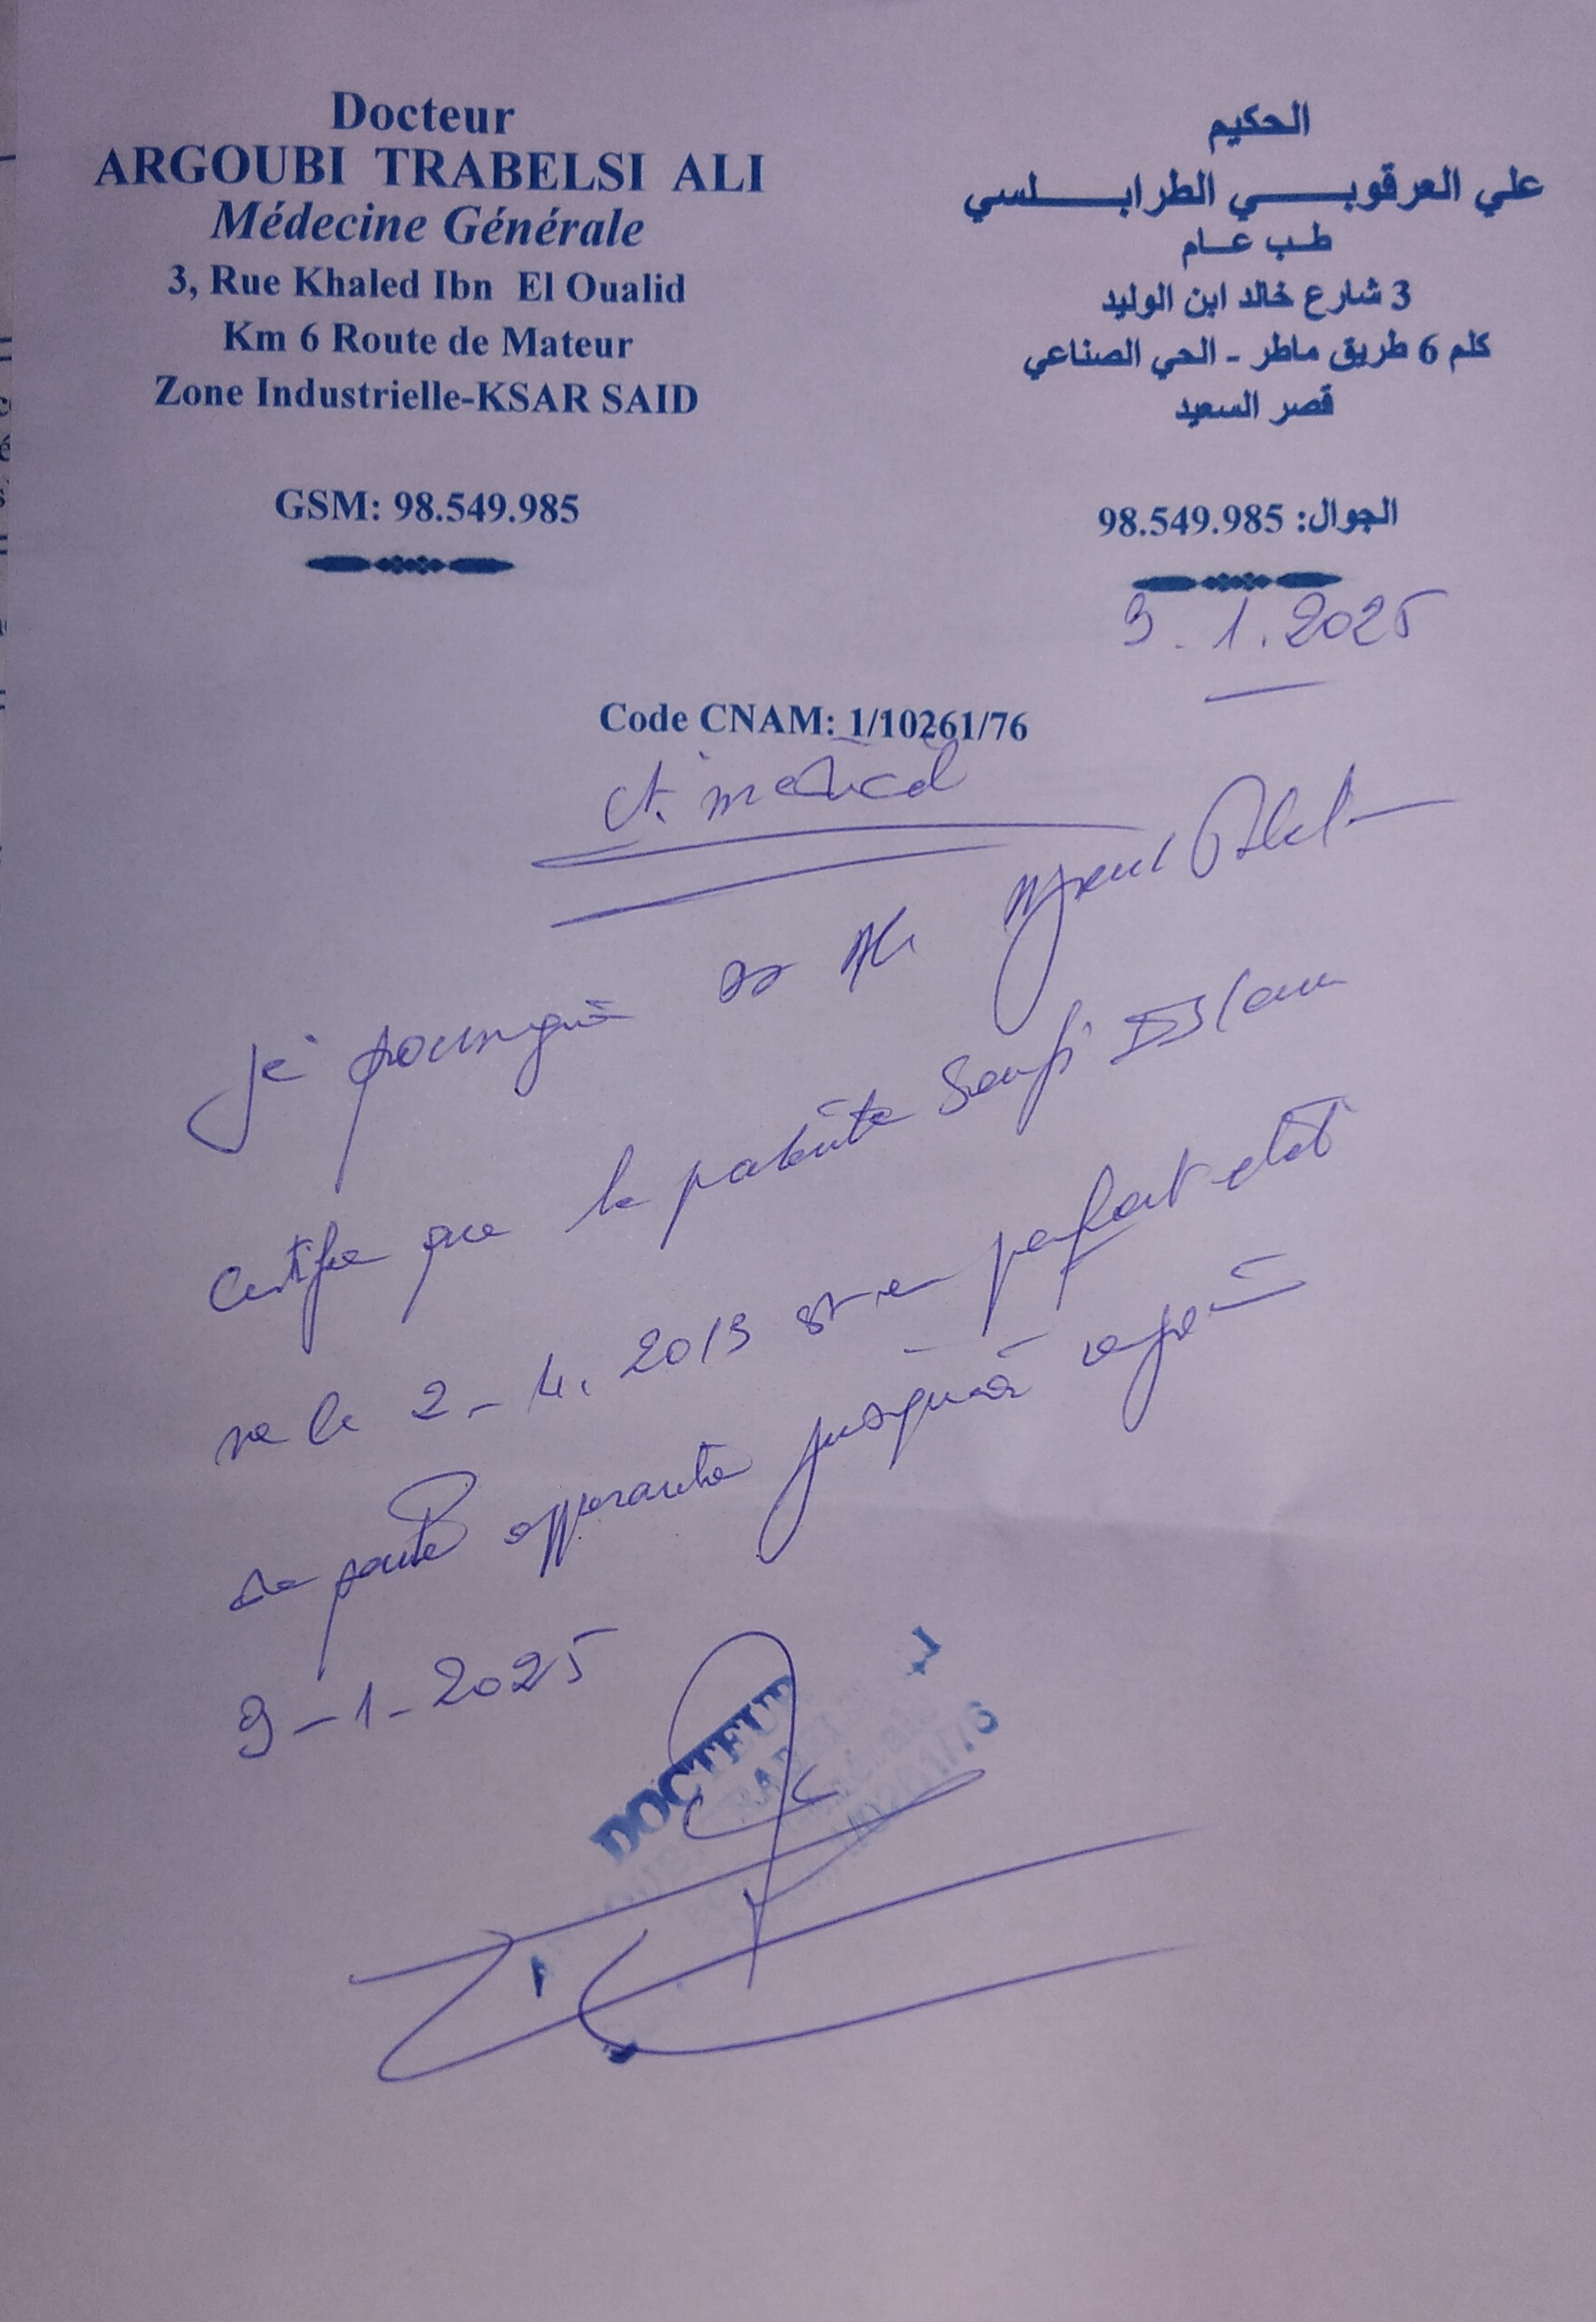 Docteur
ARGOUBI TRABELSI ALI
Médecine Générale
3, Rue Khaled Ibn El Oualid
Km 6 Route de Mateur
Zone Industrielle-KSAR SAID
GSM: 98.549.985
الحكيم
علي العرقوبي الطرابلسي
طب عام
3 شارع خالد ابن الوليد
كلم 6 طريق ماطر - الحي الصناعي
قصر السعيد
الجوال: 98.549.985
9.1.2025
Code CNAM: 1/10261/76
Ct. médical
Je
certifie que la patiente Islam
né le 2-4.2013 est en parfait état
de santé apparente jusqu'à
9-1-2025
DOCTEUR